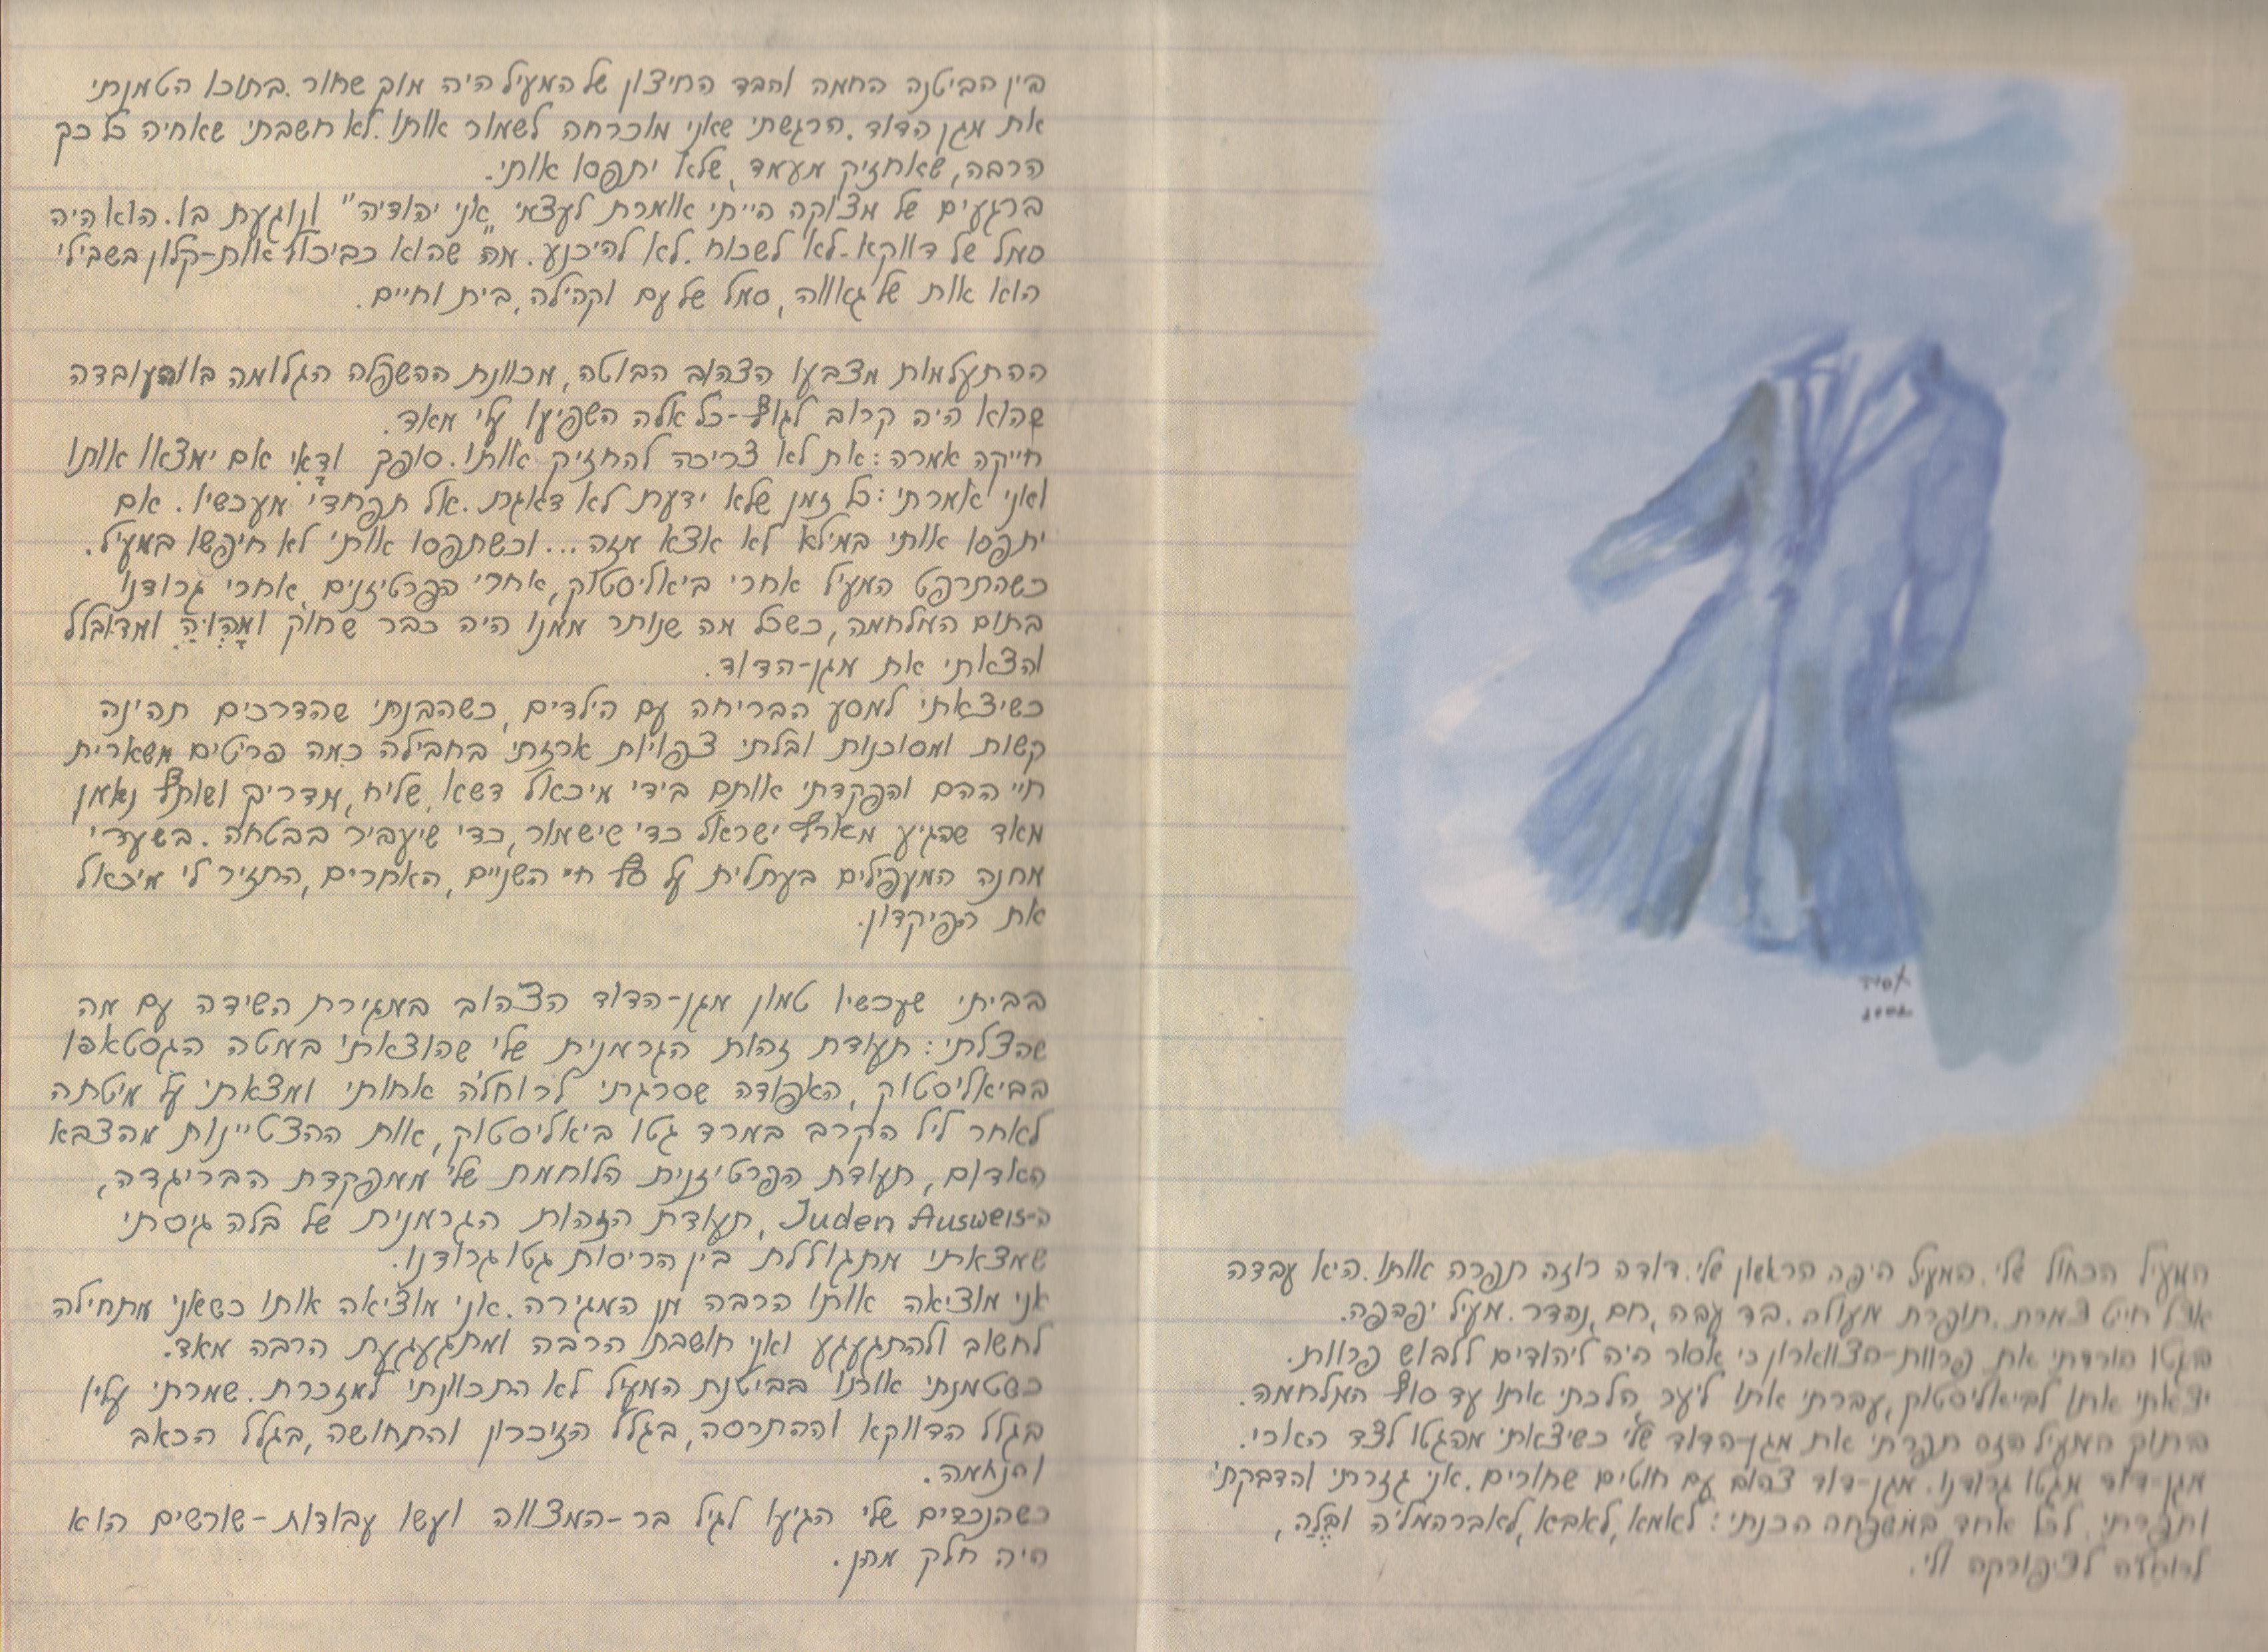 אסיד
2002
המעיל הכחול שלי. המעיל היפה הראשון שלי. דודה רוזה תפרה אותו. היא עבדה
אצל חייט צמרת. תופרת מעולה. בד עבה, חם, נהדר. מעיל יפהפה.
בגטו הורדתי את פרוות-הצווארון כי אסור היה ליהודים ללבוש פרוות.
יצאתי אתו לביאליסטוק, עברתי אתו ליער, הלכתי אתו עד סוף המלחמה.
בתוך המעיל הזה תפרתי את מגן-הדוד שלי כשיצאתי מהגטו לצד הארי.
מגן-דוד מגטו גרודנו. מגן-דוד צהוב עם חוטים שחורים. אני גזרתי והדבקתי
ותפרתי. לכל אחד במשפחה הכנתי: לאמא, לאבא, לאברהמל'ה ובֶּלַה,
לרוחל'ה לציפורקה ולי.
בין הביטנה החמה והבד החיצון של המעיל היה מוך שחור. בתוכו הטמנתי
את מגן הדוד. הרגשתי שאני מוכרחה לשמור אותו. לא חשבתי שאחיה כל כך
הרבה, שאחזיק מעמד, שלא יתפסו אותי.
ברגעים של מצוקה הייתי אומרת לעצמי "אני יהודיה" ונוגעת בו. הוא היה
סמל של דווקא. לא לשכוח. לא להיכנע. מה שהוא כביכול אות-קלון בשבילי
הוא אות של גאווה, סמל של עם וקהילה, בית וחיים.
ההתעלמות מצבעו הצהוב הבוטה, מכוונת ההשפלה הגלומה בו והעובדה
שהוא היה קרוב לגוף - כל אלה השפיעו עלי מאד.
חייקה אמרה: את לא צריכה להחזיק אותו. סופך ודָאִי אם ימצאו אותו
ואני אמרתי: כל זמן שלא ידעת לא דאגת. אל תפחדי מעכשיו. אם
יתפסו אותי במילא לא אצא מזה... וכשתפסו אותי לא חיפשו במעיל.
כשהתרפט המעיל אחרי ביאליסטוק, אחרי הפרטיזנים, אחרי גרודנו
בתום המלחמה, כשכל מה שנותר ממנו היה כבר שחוק ומָהֻוּהַּ ומדובלל
הצאתי את מגן-הדוד.
כשיצאתי למסע הבריחה עם הילדים, כשהבנתי שהדרכים תהינה
קשות ומסוכנות ובלתי צפויות ארזתי בחבילה כמה פריטים משארית
חיי ההם והפקדתי אותם בידי מיכאל דשא, שליח, מדריך ושותף נאמן
מאד שהגיע מארץ ישראל כדי שישמור, כדי שיעביר בבטחה. בשערי
מחנה המעפילים בעתלית על סף חיי השניים, האחרים, החזיר לי מיכאל
את הפיקדון.
בביתי שעכשיו טמון מגן-הדוד הצהוב במגירת השידה עם מה
שהצלתי: תעודת זהות הגרמנית שלי שהוצאתי במטה הגסטאפו
בביאליסטוק, האפודה שסרגתי לרוחל'ה אחותי ומצאתי על מיטתה
לאחר ליל הקרב במרד גטו ביאליסטוק, אות ההצטיינות מהצבא
האדום, תעודת הפרטיזנית הלוחמת שלי ממפקדת הבריגדה,
ה-Juden Ausweis, תעודת הזהות הגרמנית של בלה גיסתי
שמצאתי מתגוללת בין הריסות גטו גרודנו.
אני מוציאה אותו הרבה מן המגירה. אני מוציאה אותו כשאני מתחילה
לחשוב ולהתגעגע ואני חושבת הרבה ומתגעגעת הרבה מאד.
כשטמנתי אותו בביטנת המעיל לא התכוונתי למזכרת. שמרתי עליו
בגלל הדווקא וההתרסה, בגלל הזיכרון והתחושה, בגלל הכאב
והנחמה.
כשהנכדים שלי הגיעו לגיל בר-המצווה ועשו עבודות-שורשים הוא
היה חלק מהן.